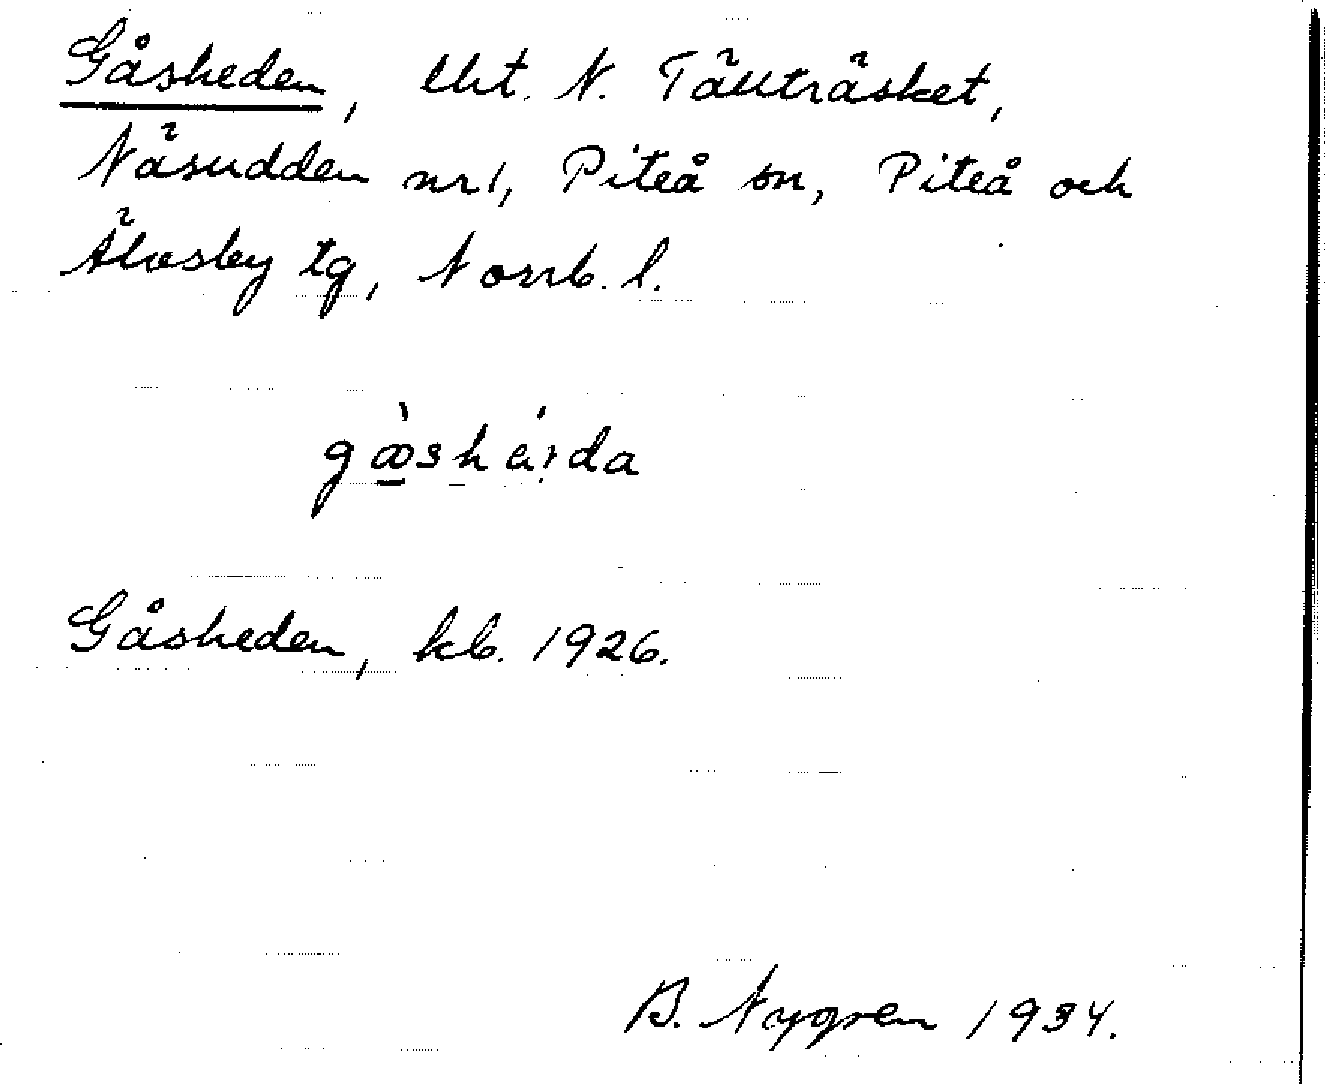 Gåsheden, lht. N. Tällträsket,
Näsudden nr 1, Piteå sn, Piteå och
Älvsby tg, Norrb. l.
Gåsheden, kb. 1926.
B. Nygren 1934.